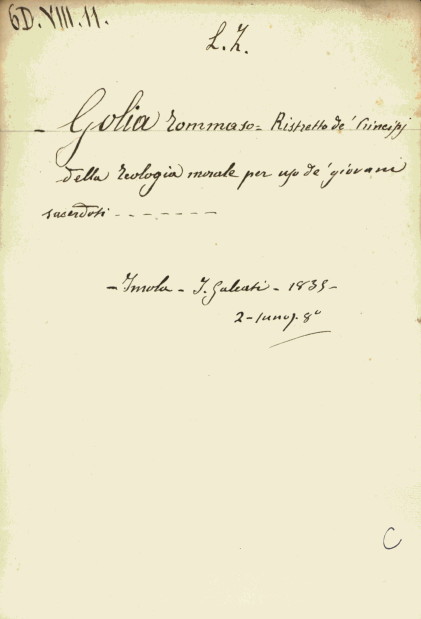 6D.VIII.11.
L.Z.
- Golia Tommaso = Ristretto de' Principj
della Teologia morale per uso de' giovani
sacerdoti - - - - - - -
- Imola - I. Galeati - 1835 -
2 - 8°
C